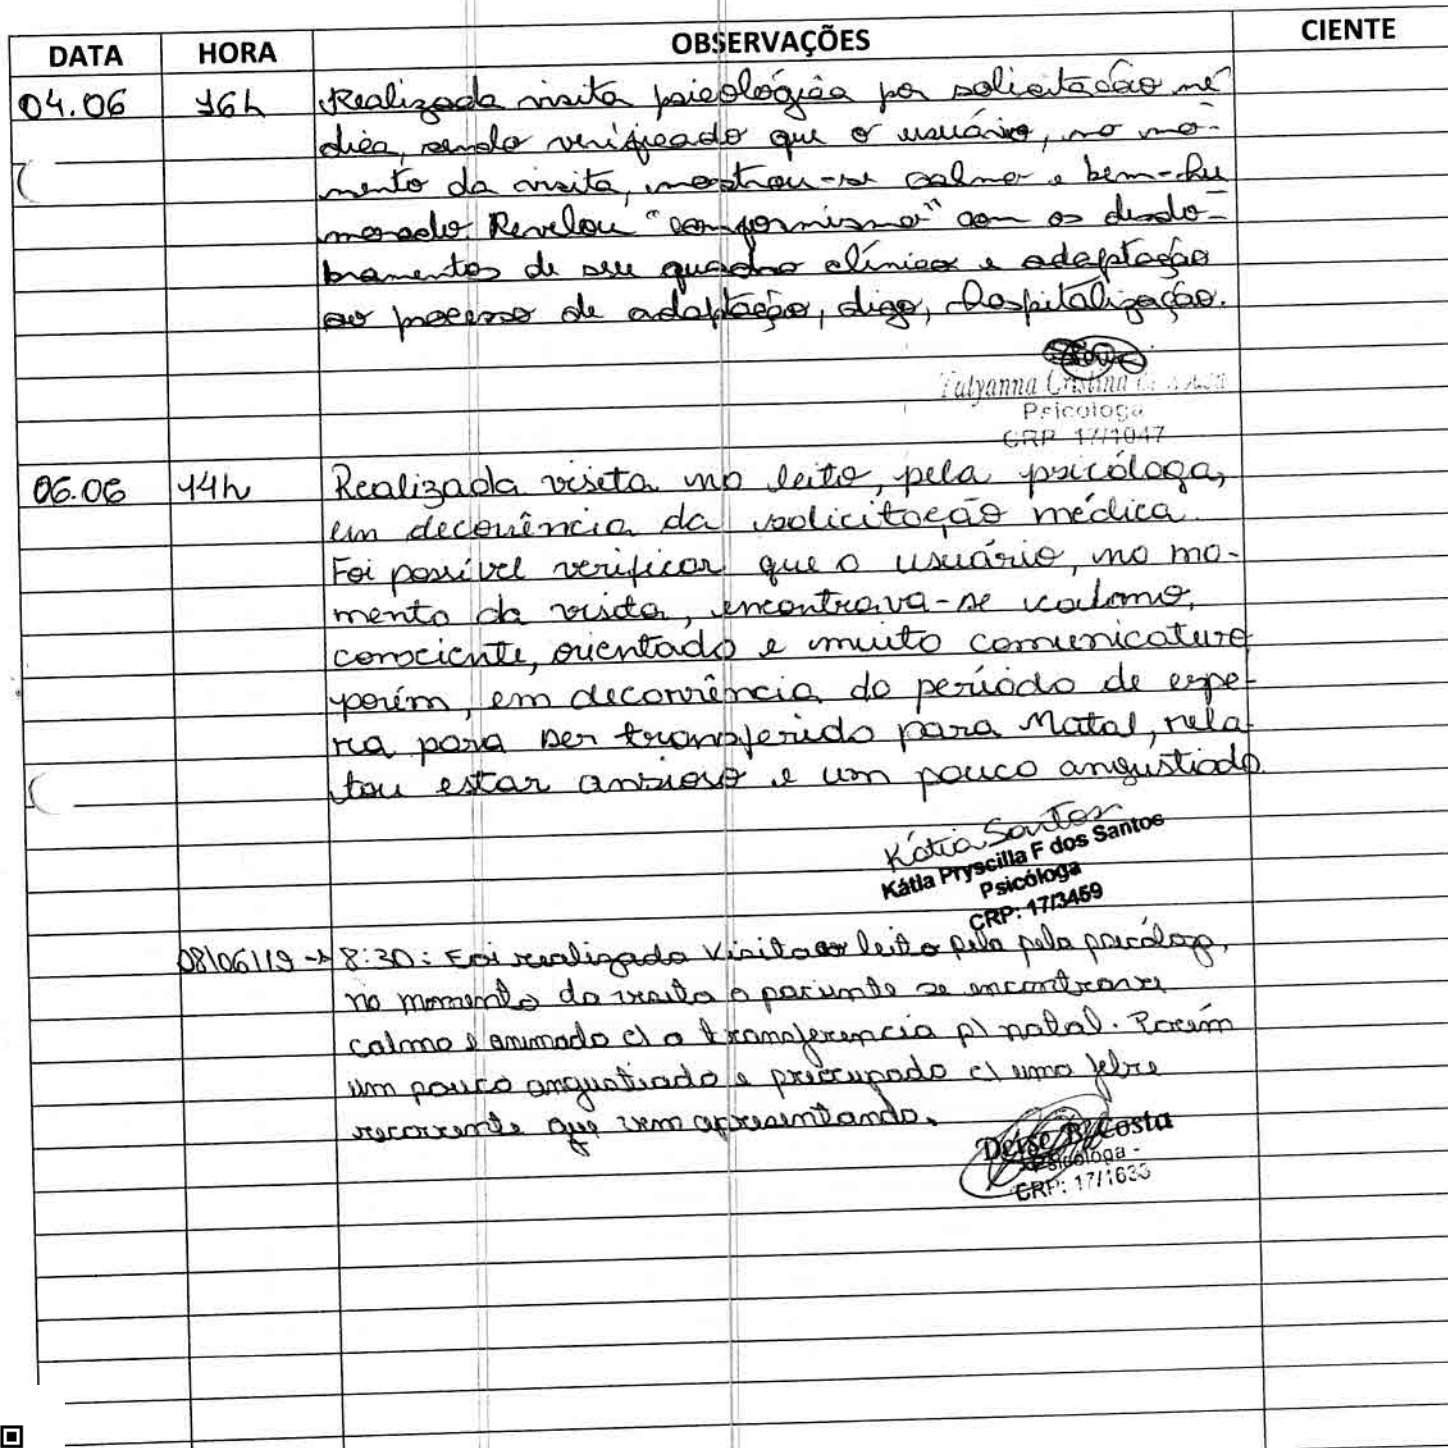 DATA HORA OBSERVAÇÕES CIENTE
04.06 16h Realizada visita psicológica por solicitação mé
dica, sendo verificado que o usuário, no mo-
mento da visita, mostrou-se calmo e bem-hu
morado. Revelou "conformismo" com os desdo-
bramentos de seu quadro clínico e adaptação
ao processo de adaptação, digo, hospitalização.
Tatyanna Cristina
Psicóloga
CRP 17/1047
06.06 14h Realizada visita no leito, pela psicóloga,
em decorrência da solicitação médica.
Foi possível verificar que o usuário, no mo-
mento da visita, encontrava-se calmo,
consciente, orientado e muito comunicativo
porém, em decorrência do período de espe-
ra para ser transferido para Natal, rela-
tou estar ansioso e um pouco angustiado.
Kátia Santos
Kátia Pryscilla F dos Santos
Psicóloga
CRP: 17/3459
08/06/19 → 8:30: Foi realizada Visita ao leito pela pela psicóloga,
no momento da visita o paciente se encontrava
calmo e animado c/ a transferencia p/ natal. Porém
um pouco angustiado e preocupado c/ uma febre
recorrente que vem apresentando.
Deise B. Costa
Psicóloga -
CRP: 17/1633